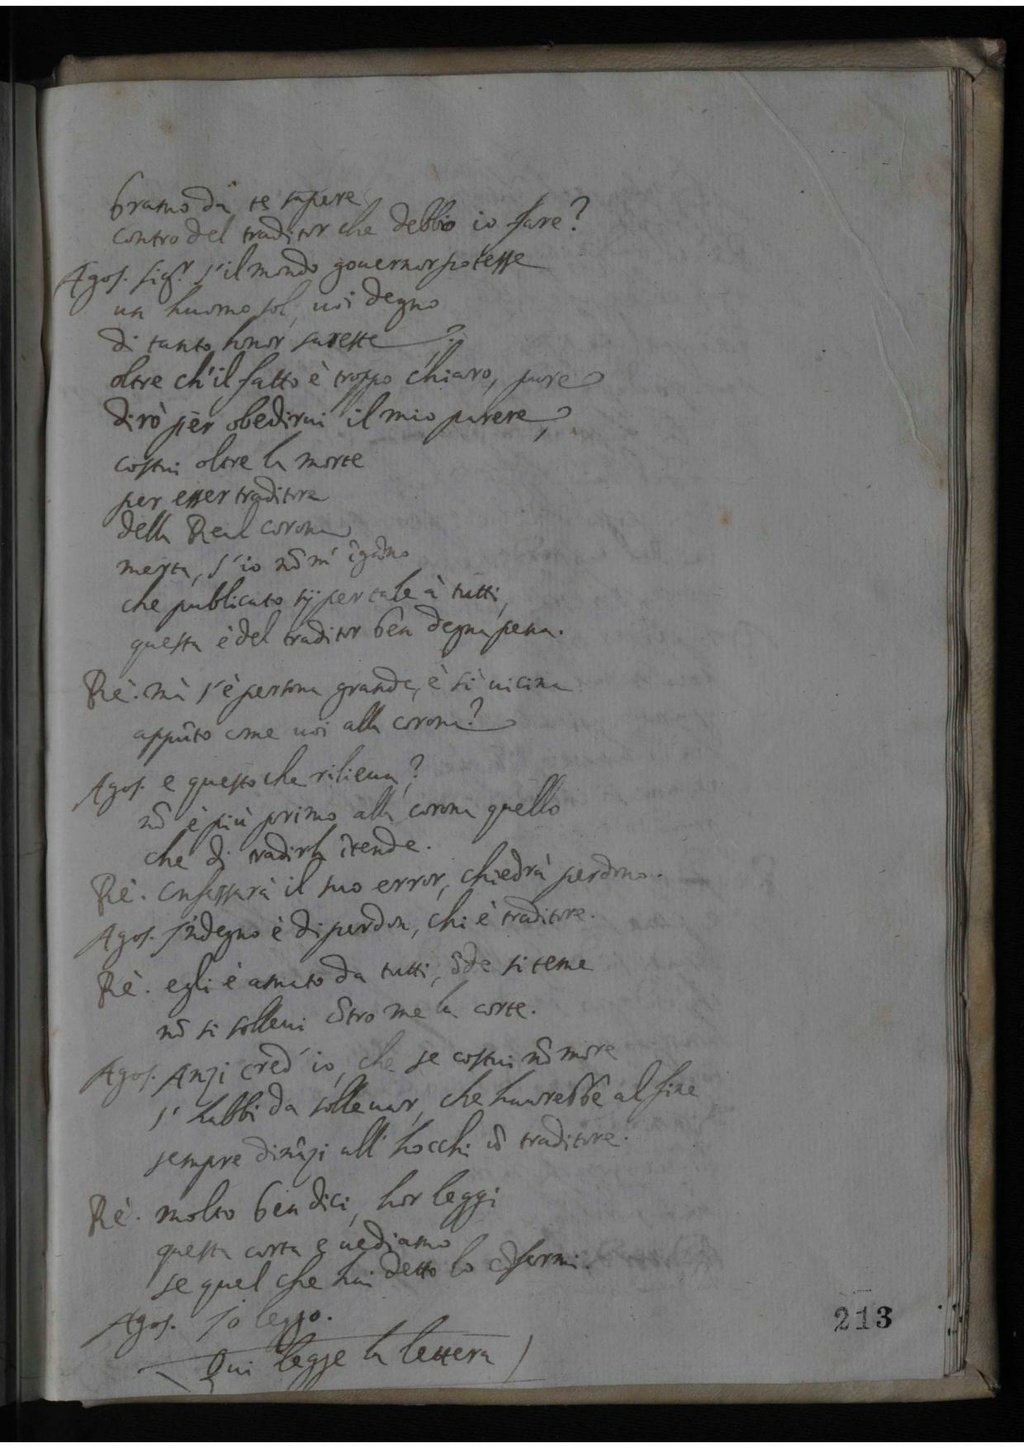 bramo da te sapere
contro del traditor che debbo io fare?
Agos. sigr. s'il mondo gouernar potesse
un huomo sol, uoi degno
di tanto honor sareste
oltre ch'il fatto è troppo chiaro, pure
dirò per obedirui il mio parere,
costui oltre la morte
per esser traditore
della Real corona,
merta, s'io nõ m'ĩgãno
che publicato sij per tale à tutti,
questa è del traditor ben degna pena.
Rè. mà s'è persona grande, è sì uicina
appũto come uoi alla corona?
Agos. e questo che rilieua?
nõ è più primo alla corona quello
che di tradirla ĩtende.
Rè. Confessarà il suo error, chiedrà perdono.
Agos. Indegno è di perdon, chi è traditore.
Rè. egli è amato da tutti, õde si teme
nõ si solleui cõtro me la corte.
Agos. Anzi cred'io, che se costui nõ more
s'habbi da solleuar, che haurebbe al fine
sempre dinãzi all'hocchi ũ traditore.
Rè. molto ben dici, hor leggi
questa carta e uediamo
se quel che hai detto lo cõfermi.
Agos. Io leggo.
Qui legge la lettera
213